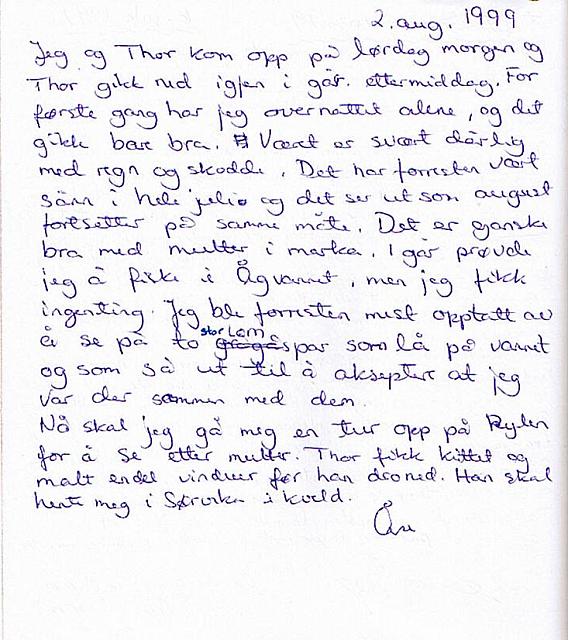 2. aug. 1999
Jeg og Thor kom opp på lørdag morgen og
Thor gikk ned igjen i går. ettermiddag. For
første gang har jeg overnattet alene, og det
gikk bare bra. Været er svært dårlig
med regn og skodde. Det har forresten vært
sånn i hele julio og det ser ut som august
fortsetter på samme måte. Det er ganske
bra med multer i marka. I går prøvde
jeg å fiske i Ågvannet, men jeg fikk
ingenting. Jeg ble forresten mest opptatt av
å se på to storlom gågåspar som lå på vannet
og som så ut til å akseptere at jeg
var der sammen med dem.
Nå skal jeg gå meg en tur opp på Rylen
for å se etter multer. Thor fikk kittet og
malt endel vinduer før han dro ned. Han skal
hente meg i Sørvika i kveld.